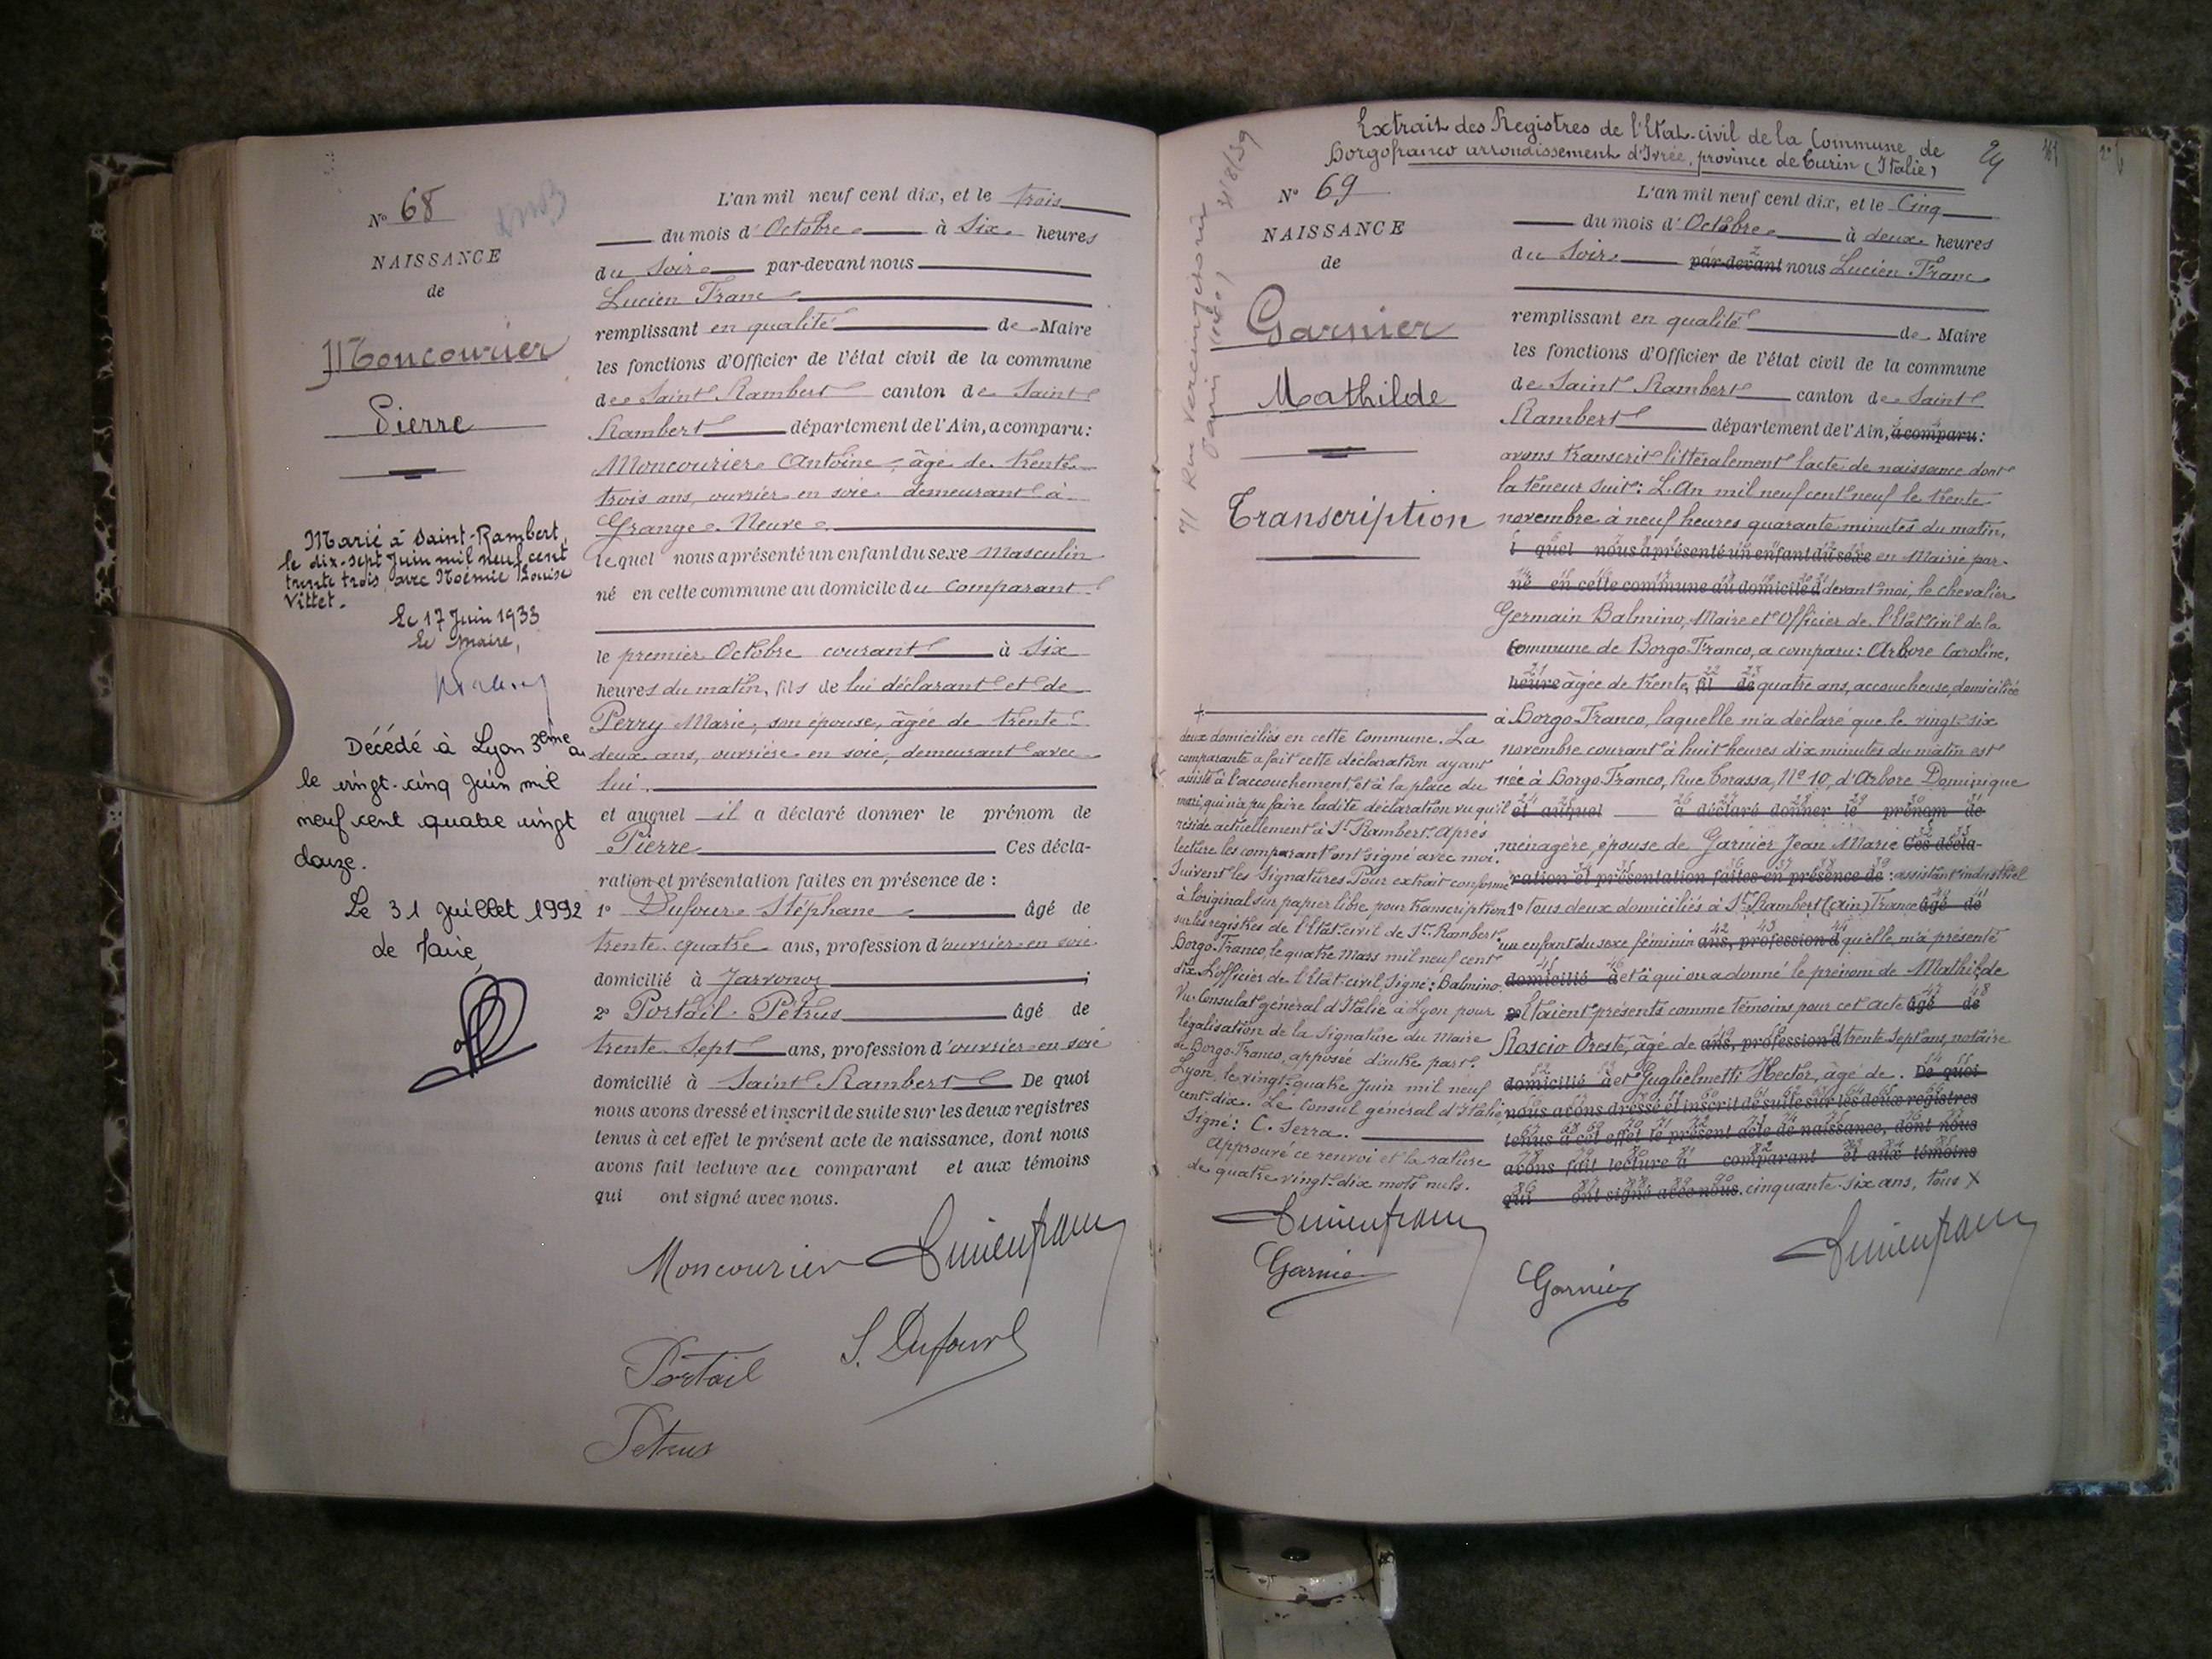 Nº 68
NAISSANCE
de
Moncourier
Pierre
Marié à Saint-Rambert,
le dix-sept Juin mil neuf cent
trente trois avec Noémie Louise
Vittet.
Le 17 Juin 1933
Le Maire,
Décédé à Lyon 3ème a
le vingt-cinq Juin mil
neuf cent quatre vingt
douze.
Le 31 Juillet 1992
L'an mil neuf cent dix, et le trois
du mois d'Octobre à Six heures
du Soir par-devant nous
Lucien Franc
remplissant en qualité de Maire
les fonctions d'Officier de l'état civil de la commune
de Saint Rambert canton de Saint
Rambert département de l'Ain, a comparu:
Moncourier Antoine, âgé de trente
trois ans, ouvrier en soie demeurant à
Grange Neuve
lequel nous a présenté un enfant du sexe Masculin
né en cette commune au domicile du comparant
le premier Octobre courant à Six
heures du matin, fils de lui déclarant et de
Perry Marie, son épouse, âgée de trente
deux ans, ouvrière en soie, demeurant avec
lui.
et auquel il a déclaré donner le prénom de
Pierre Ces décla-
ration et présentation faites en présence de :
1º Dufour Stéphane âgé de
trente quatre ans, profession d'ouvrier en soie
domicilié à ;
2º Portail Pétrus âgé de
trente Sept ans, profession d'ouvrier en soie
domicilié à Saint Rambert De quoi
nous avons dressé et inscrit de suite sur les deux registres
tenus à cet effet le présent acte de naissance, dont nous
avons fait lecture au comparant et aux témoins
qui ont signé avec nous.
Moncourier Lucien franc
S. Dufour
Portail
Petrus
Extrait des Registres de l'Etat-civil de la Commune de
Borgofranco arrondissement d'Ivrée, province de Turin (Italie)
Nº 69
NAISSANCE
de
Garnier
Mathilde
Transcription
L'an mil neuf cent dix, et le Cinq
du mois d'Octobre à deux heures
du Soir par-devant nous Lucien Franc
remplissant en qualité de Maire
les fonctions d'Officier de l'état civil de la commune
de Saint Rambert canton de Saint
Rambert département de l'Ain, a comparu:
avons transcrit littéralement l'acte de naissance dont
la teneur suit: L'An mil neuf cent neuf le trente
novembre à neuf heures quarante minutes du matin,
l quel nous a présenté un enfant du sexe en Mairie par-
né en cette commune au domicile d devant moi, le chevalier
Germain Balmino, Maire et Officier de l'Etat civil de la
Commune de Borgo-Franco, a comparu: Arbore Caroline,
heure âgée de trente, fil de quatre ans, accoucheuse, domiciliée
à Borgo-Franco, laquelle m'a déclaré que le vingt-six
novembre courant à huit heures dix minutes du matin est
née à Borgo-Franco, Rue Torassa, Nº 10, d'Arbore Dominique
et auquel a déclaré donner le prénom de
ménagère, épouse de Garnier Jean Marie Ces décla-
ration et présentation faites en présence de : assistant industriel
1º tous deux domiciliés à St Rambert (Ain) France âgé de
un enfant du sexe féminin ans, profession d qu'elle m'a présenté
domicilié à et à qui on a donné le prénom de Mathilde
2º Etaient présents comme témoins pour cet acte âgé de
Roscio Oreste, âgé de ans, profession d trente Sept ans, notaire
domicilié à et Guglielmetti Hector, âgé de. De quoi
nous avons dressé et inscrit de suite sur les deux registres
tenus à cet effet le présent acte de naissance, dont nous
avons fait lecture à comparant et aux témoins
qui ont signé avec nous. cinquante-six ans, tous X
deux domiciliés en cette Commune. La
comparante a fait cette déclaration ayant
assisté à l'accouchement, et à la place du
mari, qui n'a pu faire ladite déclaration vu qu'il
réside actuellement à St Rambert. Après
lecture les comparant ont signé avec moi.
Suivent les Signatures. Pour extrait conforme
à l'original sur papier libre pour transcription
sur les registres de l'Etat civil de St Rambert
Borgo-Franco, le quatre Mars mil neuf cent
dix. L'officier de l'Etat civil, Signé: Balmino.
Vu Consulat général d'Italie à Lyon pour
légalisation de la Signature du Maire
de Borgo-Franco, apposée d'autre part.
Lyon, le vingt-quatre Juin mil neuf
cent dix. Le Consul général d'Italie,
Signé: C. Serra.
Approuvé ce renvoi et la rature
de quatre vingt-dix mots nuls.
Lucien franc
Garnier
Garnier
Lucien franc